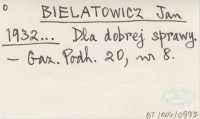 BIELATOWICZ Jan
1932... Dla dobrej sprawy.
– Gaz. Podh. 20, nr 8.